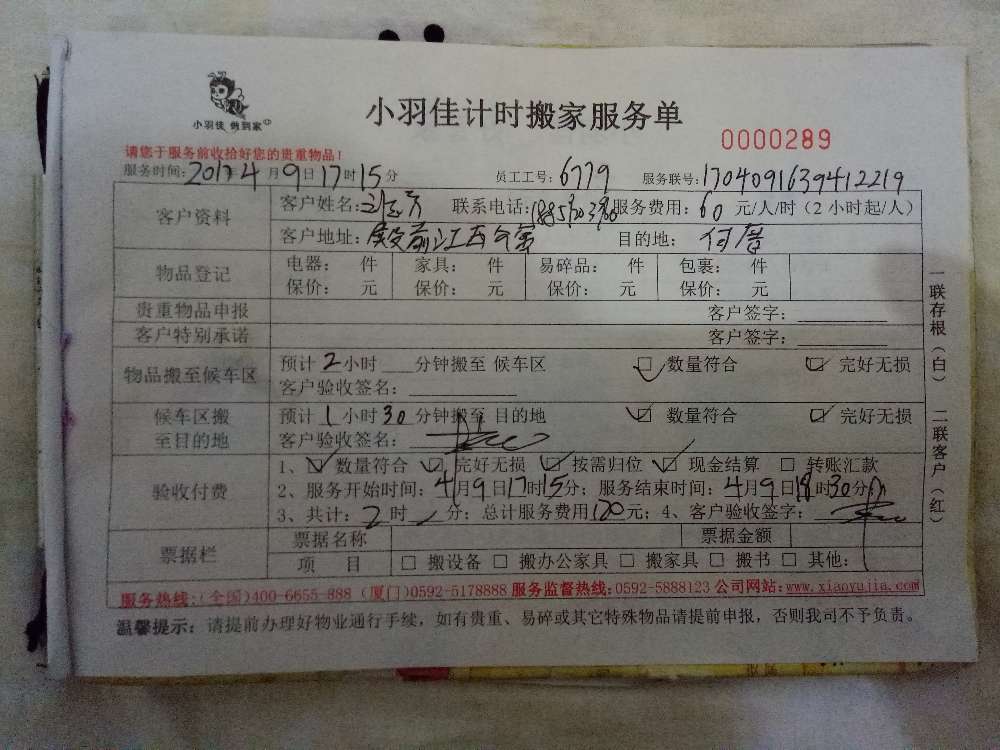 小羽佳 做到家
小羽佳计时搬家服务单
0000289
请您于服务前收拾好您的贵重物品!
服务时间:2017年4月9日17时15分 员工工号:6779 服务联号:1704091639412219
客户资料 客户姓名: 联系电话: 服务费用:60元/人/时(2小时起/人)
客户地址:殿前江西 目的地:何厝
物品登记 电器: 件 家具: 件 易碎品: 件 包裹: 件
保价: 元 保价: 元 保价: 元 保价: 元
贵重物品申报 客户签字:
客户特别承诺 客户签字:
物品搬至候车区 预计2小时 分钟搬至 候车区 数量符合 完好无损
客户验收签名:
候车区搬至目的地 预计1小时30分钟搬至 目的地 数量符合 完好无损
客户验收签名:
验收付费 1、数量符合 完好无损 按需归位 现金结算 转账汇款
2、服务开始时间:4月9日17时15分;服务结束时间:4月9日18时30分
3、共计:2时 分;总计服务费用120元;4、客户验收签字:
票据栏 票据名称 票据金额
项 目 搬设备 搬办公家具 搬家具 搬书 其他:
服务热线:(全国)400-6655-888 (厦门)0592-5178888 服务监督热线:0592-5888123 公司网站:www.xiaoyujia.com
温馨提示:请提前办理好物业通行手续,如有贵重、易碎或其它特殊物品请提前申报,否则我司不予负责。
一联存根(白) 二联客户(红)